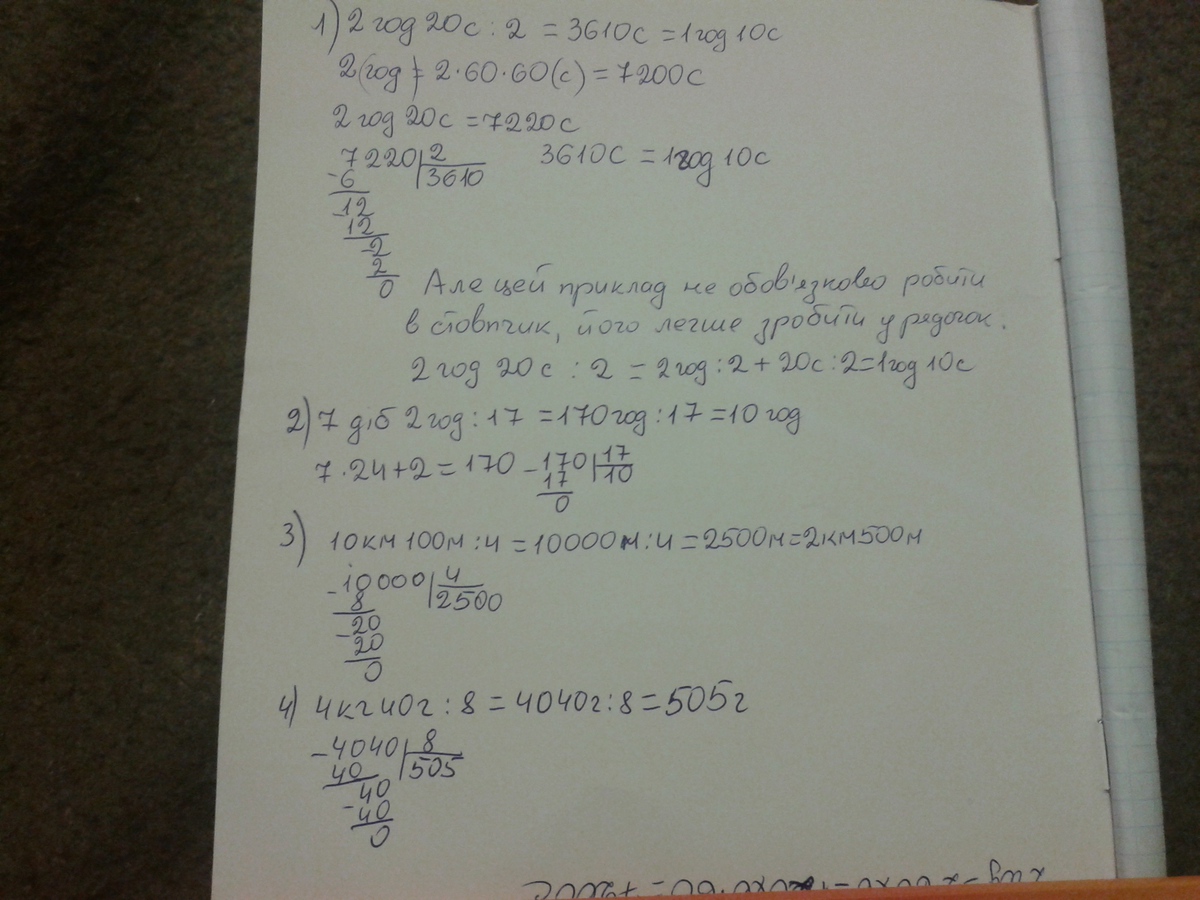 1) 2 год 20с : 2 = 3610с = 1год 10с
2(год) = 2·60·60(с) = 7200с
2 год 20с = 7220с
7220 | 2 3610с = 1год 10с
-6 3610
-12
12
-2
2
0
Але цей приклад не обов'язково робити
в стовпчик, його легше зробити у рядочок.
2 год 20с : 2 = 2год : 2 + 20с : 2 = 1год 10с
2) 7 діб 2 год : 17 = 170 год : 17 = 10 год
7·24+2 = 170 -170 | 17
17 10
0
3) 10км 100м : 4 = 10000м : 4 = 2500м = 2км 500м
-10000 | 4
8 2500
-20
20
0
4) 4кг 40г : 8 = 4040г : 8 = 505г
-4040 | 8
40 505
40
-40
0